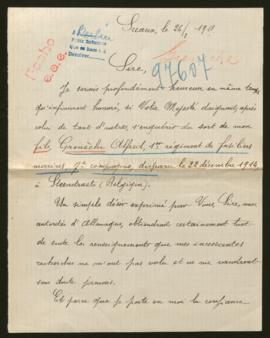 Sceaux, le 26/2 191
97607
Sire,
Je serais profondément heureux en même temps
qu'infiniment honoré, si Votre Majesté daignait, après
celui de tant d'autres, s'enquérir du sort de mon
fils, Alfred, 1er régiment de fusiliers
marins, 9e compagnie, disparu le 22 décembre 1914
à Steenstraete (Belgique).
Un simple désir exprimé par Vous, Sire, aux
autorités d'Allemagne, obtiendrait certainement tout
de suite les renseignements que mes incessantes
recherches ne m'ont pas valu et ne me vaudront
sans doute jamais.
Et parce que je porte en moi la confiance